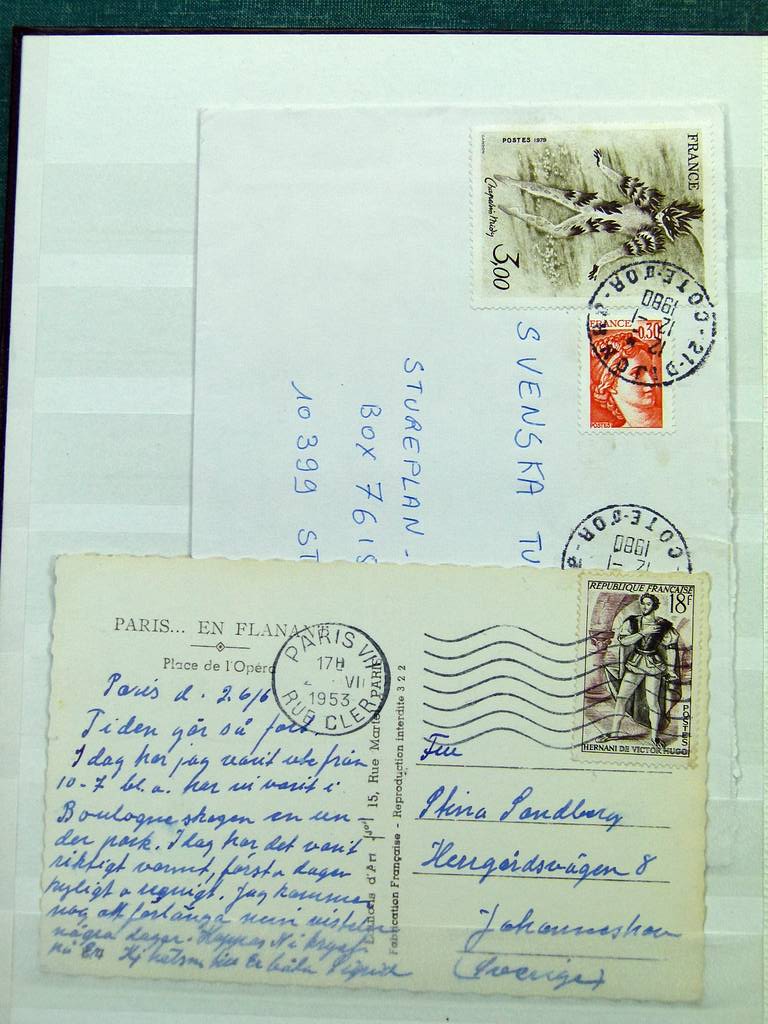 POSTES 1979
FRANCE
3,00
21-DIJON R.P.
COTE-D'OR
12-1
1980
FRANCE
0,30
POSTES
SVENSKA TU
STUREPLAN -
BOX 7615
10 399 ST
COTE-D'OR
12-1
1980
PARIS... EN FLANANT
Place de l'Opéra
PARIS VII
17H
VII
1953
RUE CLER
REPUBLIQUE FRANÇAISE
18F
POSTES
HERNANI DE VICTOR HUGO
15, Rue Martel, PARIS
Fabrication Française - Reproduction interdite 322
Paris d. 26/6
Tiden går så fort.
I dag har jag varit ute från
10-7 bl.a. har vi varit i
Boulogneskogen en un
der park. I dag har det varit
riktigt varmt, första dagen
kyligt o regnigt. Jag kommer
nog att förlänga min vistelse
några dagar. Hoppas Ni
på Er. Hälsn
Fru
Stina Sandberg
Herrgårdsvägen 8
Johanneshov
(Sverige)